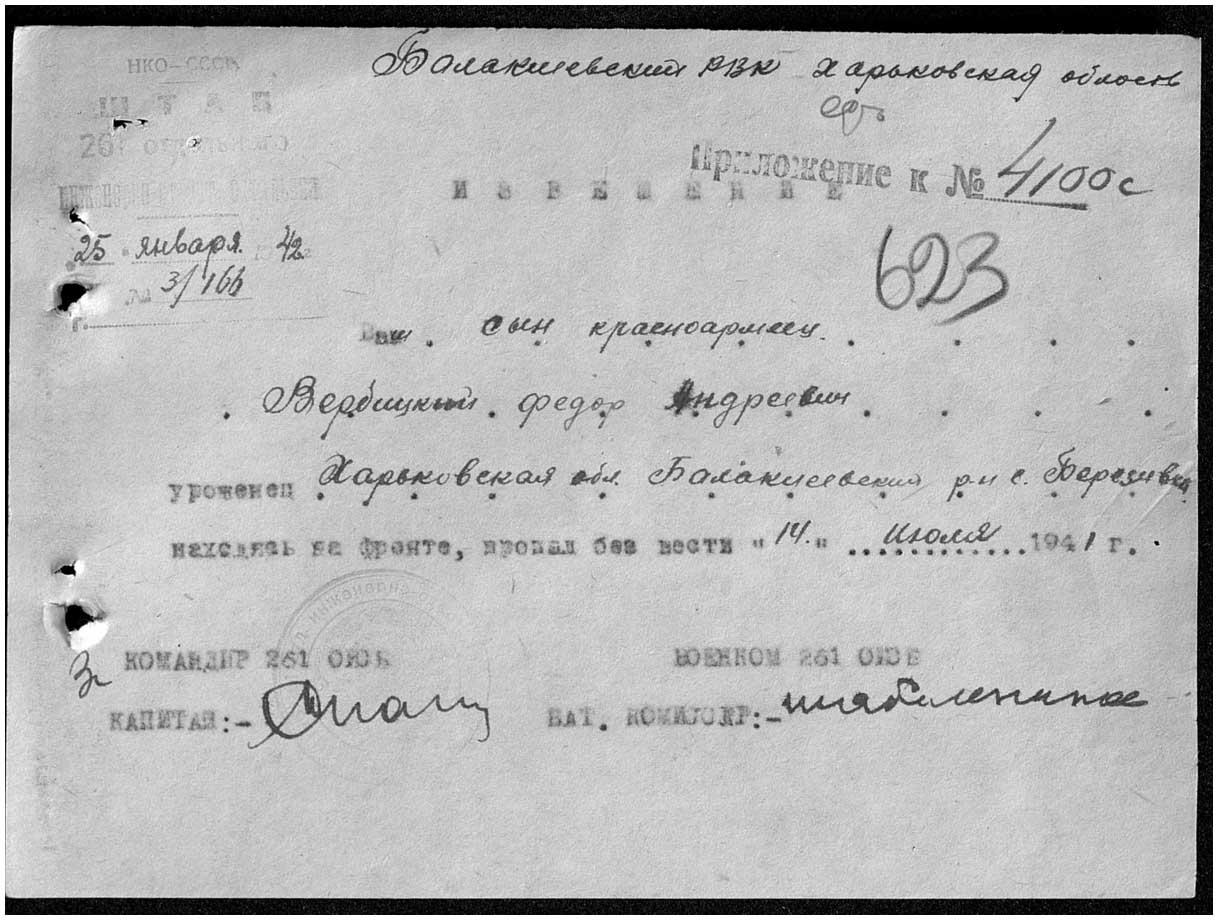 НКО-СССР
ШТАБ
261 отдельного
Балаклеевский РВК Харьковская область
Приложение к № 4100с
ИЗВЕЩЕНИЕ
25 января 1942г
№ 3/166
г.
623
Ваш сын красноармеец
Вербицкий Федор Андреевич
уроженец Харьковская обл. Балаклеевский р-н с. Березивка
находясь на фронте, пропал без вести "14." июля 1941 г.
КОМАНДИР 261 ОИСБ
ВОЕНКОМ 261 ОИСБ
КАПИТАН:-
БАТ. КОМИССАР:-